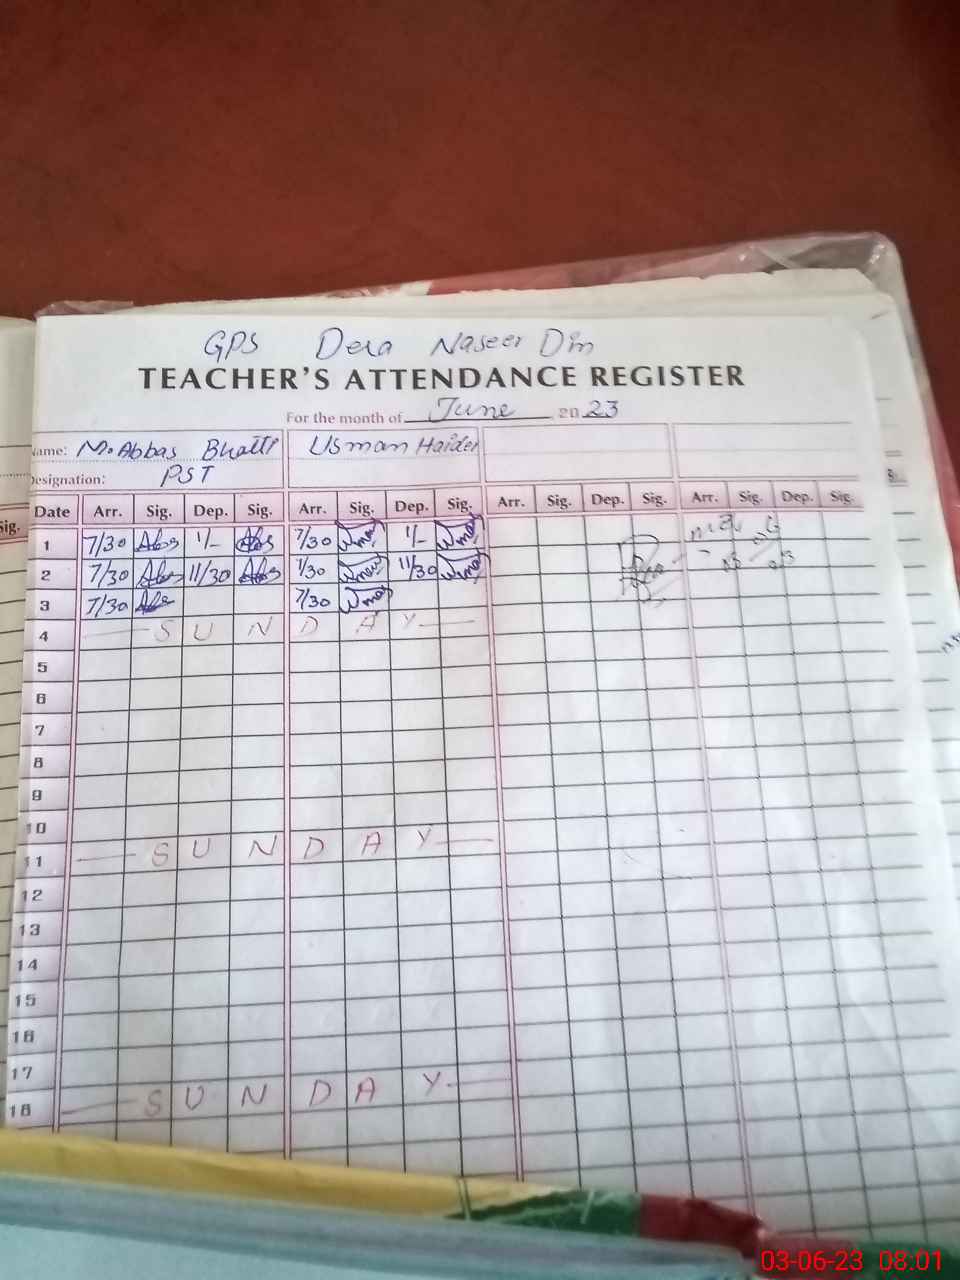 GPS Dera Naseer Din
TEACHER'S ATTENDANCE REGISTER
For the month of June 2023
Name: M. Abbas Bhatti Usman Haider
Designation: PST
Sig. Date Arr. Sig. Dep. Sig. Arr. Sig. Dep. Sig. Arr. Sig. Dep. Sig. Arr. Sig. Dep. Sig.
1 7/30 Abs 1/- Abs 7/30 Usman 1/- Usman
2 7/30 Abs 11/30 Abs 7/30 Usman 11/30 Usman
3 7/30 Abs 7/30 Usman
4 SUNDAY
5
6
7
8
9
10
11 SUNDAY
12
13
14
15
16
17
18 SUNDAY
03-06-23 08:01